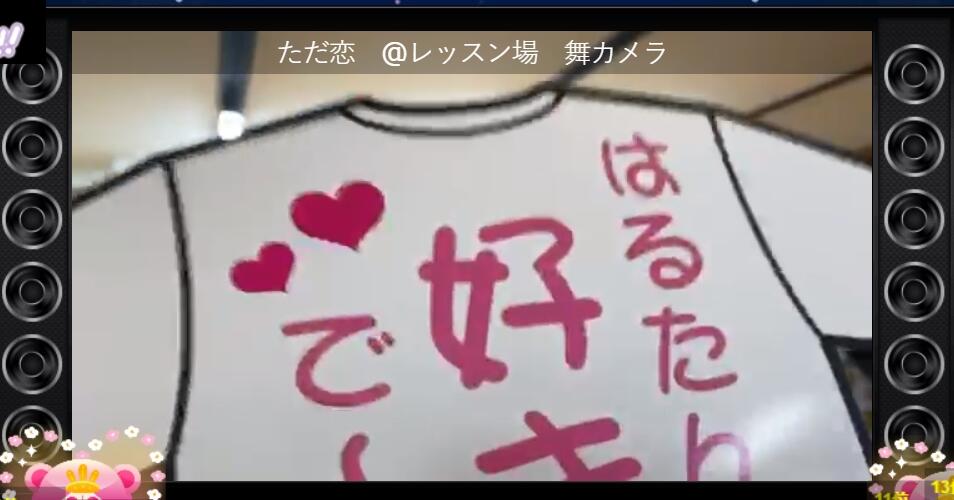 ただ恋　@レッスン場　舞カメラ
はるたり
好き
でし
!!
13位
1位